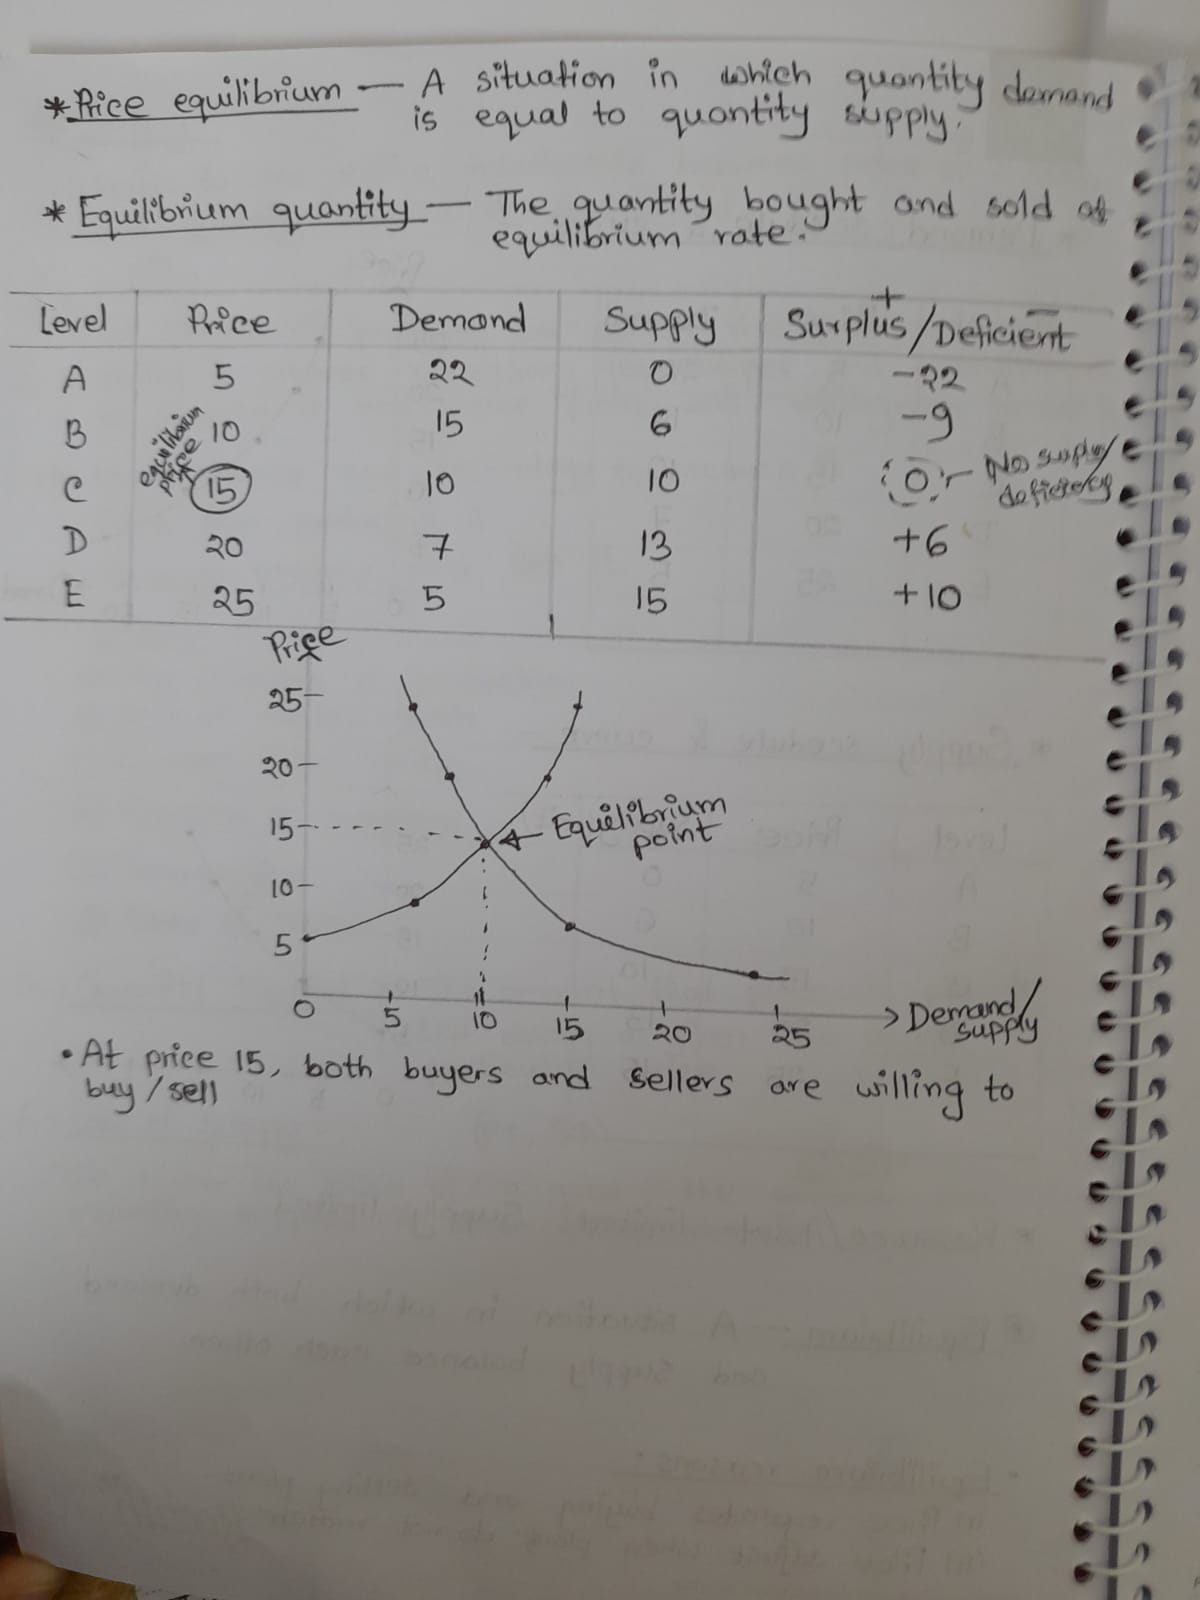 * Price equilibrium — A situation in which quantity demand
is equal to quantity supply.
* Equilibrium quantity — The quantity bought and sold at
equilibrium rate.
Level Price Demand Supply Surplus/Deficient
+ −
A 5 22 0 -22
B 10 15 6 -9
equilibrium
price
C 15 10 10 0 - No supply/
deficiency
D 20 7 13 +6
E 25 5 15 +10
Price
25
20
15
Equilibrium
point
10
5
0 5 10 15 20 25
Demand/
supply
• At price 15, both buyers and sellers are willing to
buy/sell